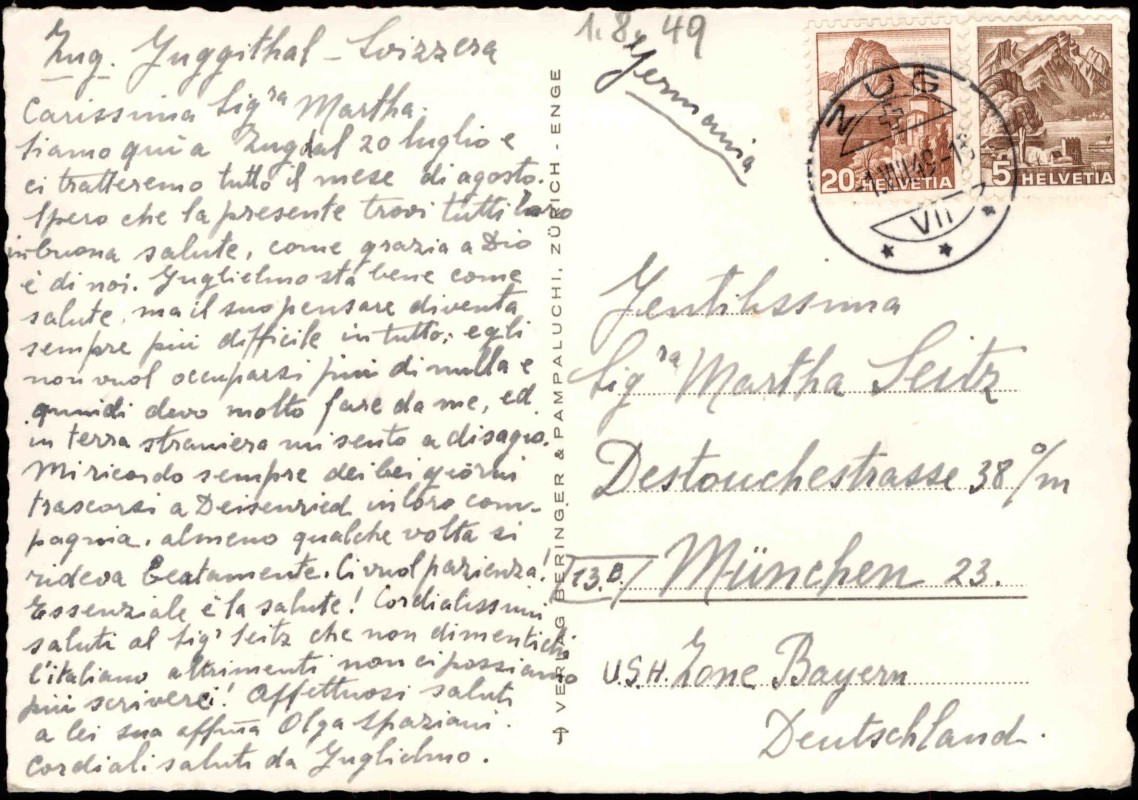 Zug. Guggithal - Svizzera
1.8.49
Germania
Carissima Sigra Martha.
Siamo qui a Zug dal 20 luglio e
ci tratteremo tutto il mese di agosto.
Spero che la presente trovi tutti loro
in buona salute, come grazia a Dio
è di noi. Guglielmo sta bene come
salute, ma il suo pensare diventa
sempre più difficile in tutto; egli
non vuol occuparsi più di nulla e
quindi devo molto fare da me, ed
in terra straniera mi sento a disagio.
Mi ricordo sempre dei bei giorni
trascorsi a Deisenried in loro com-
pagnia, almeno qualche volta si
rideva beatamente. Ci vuol pazienza!
Essenziale è la salute! Cordialissimi
saluti al Sigr Seitz che non dimentichi
l'italiano altrimenti non ci possiamo
più scriverci! Affettuosi saluti
a lei sua affma Olga Spaziani.
Cordiali saluti da Guglielmo.
VERLAG BERINGER & PAMPALUCHI, ZÜRICH - ENGE
20 HELVETIA
5 HELVETIA
ZUG
VII
Gentilissima
Sigra Martha Seitz
Destouchestrasse 38 o/m
13.B. München 23.
U.S.A. Zone Bayern
Deutschland.